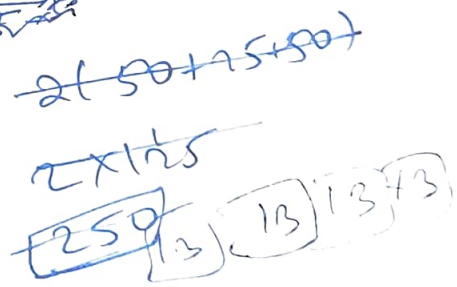 2(50+25+50)
2×125
250 13 13 13 13